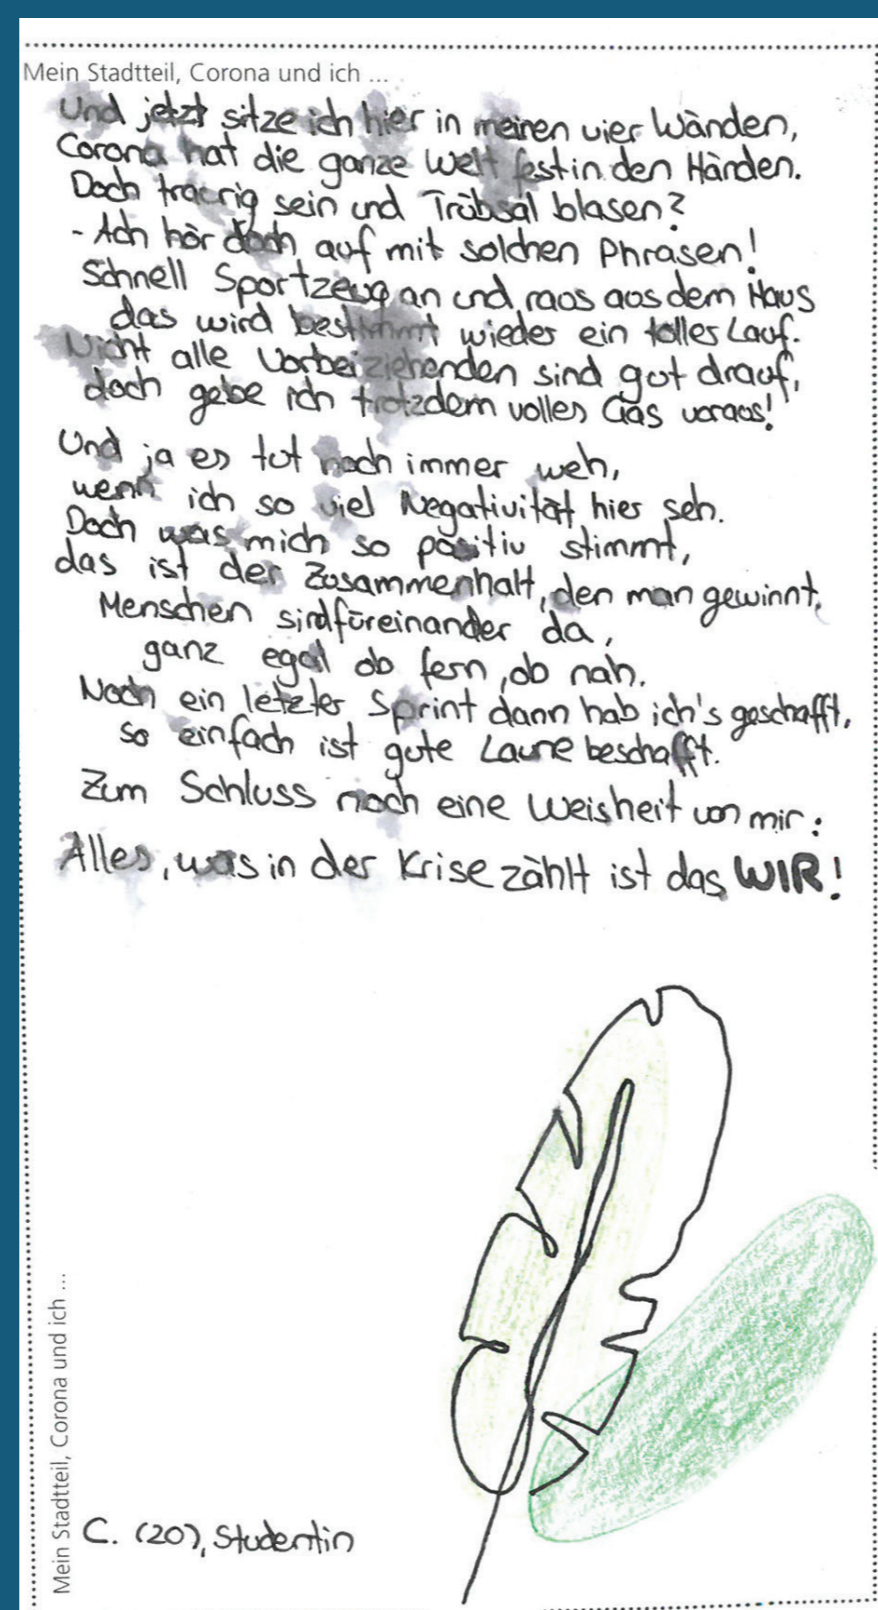 Mein Stadtteil, Corona und ich ...
Und jetzt sitze ich hier in meinen vier Wänden,
Corona hat die ganze Welt fest in den Händen.
Doch traurig sein und Trübsal blasen?
- Ach hör doch auf mit solchen Phrasen!
Schnell Sportzeug an und raus aus dem Haus
das wird bestimmt wieder ein toller Lauf.
Nicht alle Vorbeiziehenden sind gut drauf,
doch gebe ich trotzdem volles Gas voraus!
Und ja es tut noch immer weh,
wenn ich so viel Negativität hier seh.
Doch was mich so positiv stimmt,
das ist der Zusammenhalt, den man gewinnt.
Menschen sind füreinander da,
ganz egal ob fern, ob nah.
Noch ein letzter Sprint dann hab ich's geschafft,
so einfach ist gute Laune beschafft.
Zum Schluss noch eine Weisheit von mir:
Alles, was in der Krise zählt ist das WIR!
Mein Stadtteil, Corona und ich ...
C. (20), Studentin